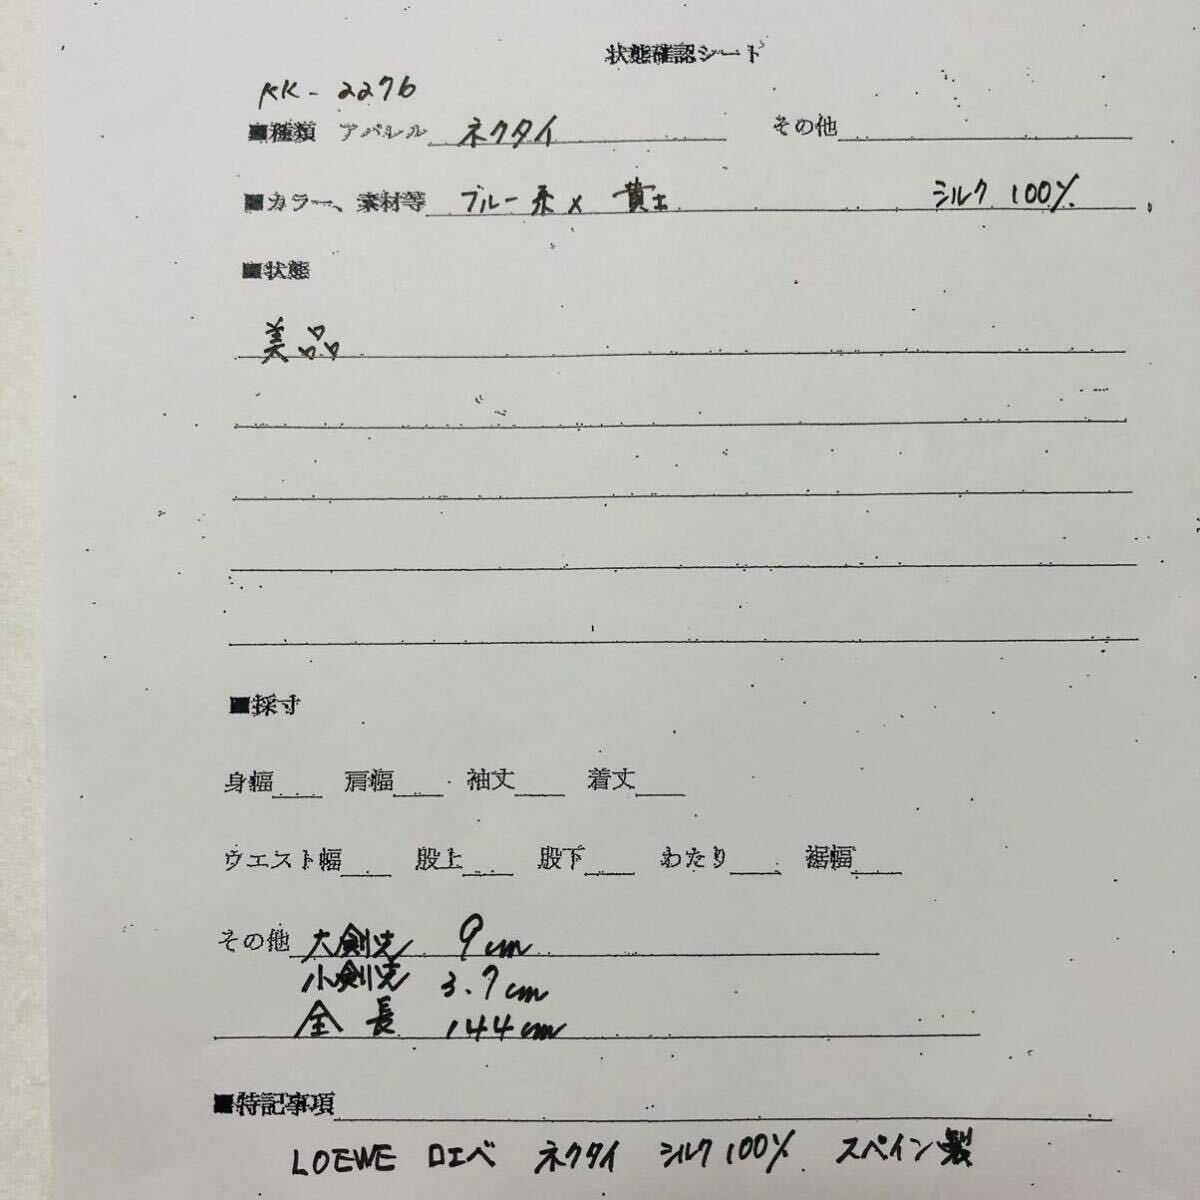 状態確認シート
KK-2276
■種類 アパレル ネクタイ その他
■カラー、素材等 ブルー系 × 黄土 シルク 100%
■状態
美品
■採寸
身幅 肩幅 袖丈 着丈
ウエスト幅 股上 股下 わたり 裾幅
その他 大剣先 9cm
小剣先 3.7cm
全長 144cm
■特記事項
LOEWE ロエベ ネクタイ シルク100% スペイン製